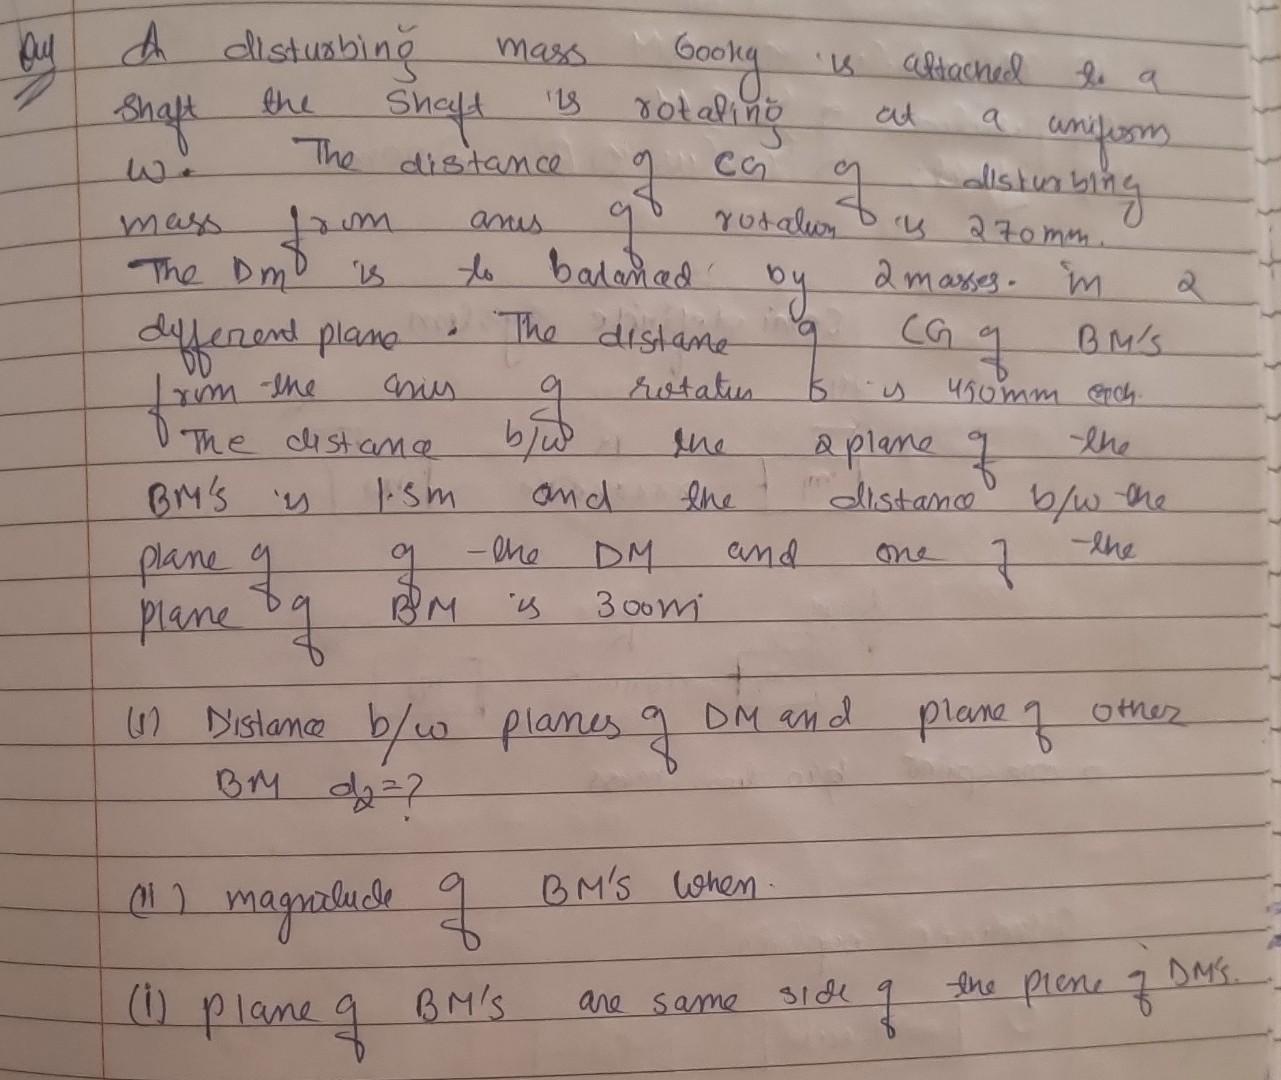 A disturbing mass 600kg is attached to a
shaft the shaft is rotating at a uniform
w. The distance of CG of disturbing
mass from axis of rotation is 270mm.
The Dm is to balanced by 2 masses. in 2
different plane. The distane of CG of BM'S
from the axis of rotation is 450mm each.
The distance b/w the 2 plane of the
BM'S is 1.5m and the distance b/w the
plane of of the DM and one of the
plane of BM is 300m
(I) Distance b/w planes of DM and plane of other
BM d2=?
(II) magnitude of BM'S when.
(i) plane of BM'S are same side of the plane of DM's.